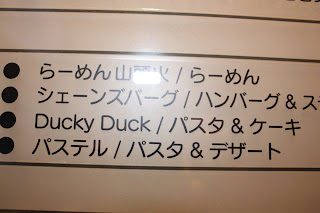 ● らーめん山頭火 / らーめん
● シェーンズバーグ / ハンバーグ & ス
● Ducky Duck / パスタ & ケーキ
● パステル / パスタ & デザート